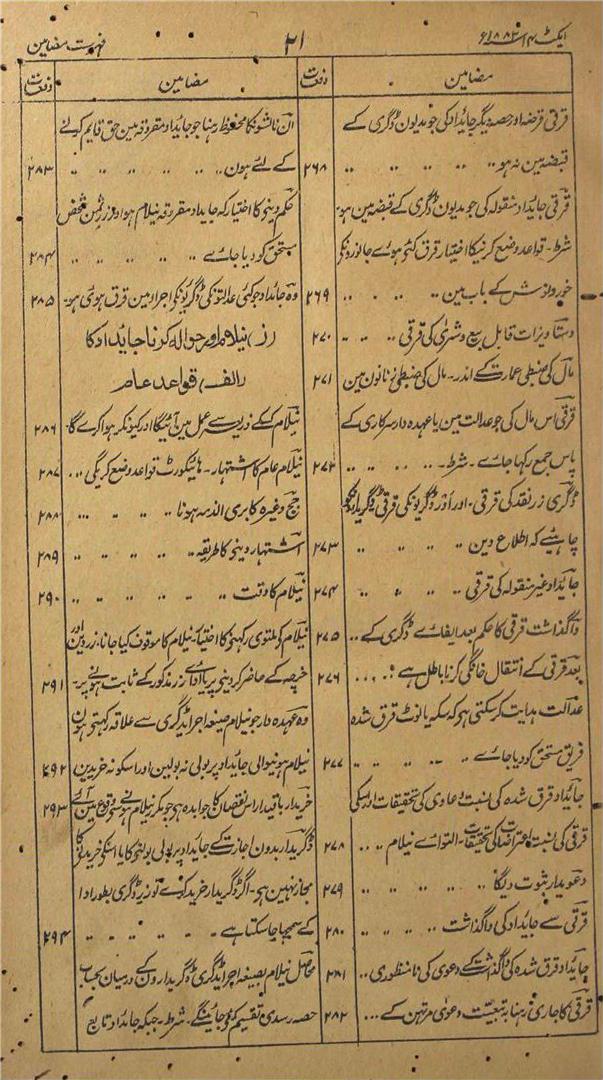 ایکٹ ۱۴ سنہ ۱۸۸۲ء
۲۱
فہرست مضامین
مضامین
دفعات
قرقی قرضہ اور حصہ دیگر جایداد کی جو مدیون ڈگری کے
قبضہ مین نہ ہو .. .. .. .. .. ۲۶۸
قرقی جایداد منقولہ کی جو مدیون ڈگری کے قبضہ مین ہو۔
شرط۔ قواعد وضع کرنیکا اختیار قرق کئے ہوئے جانورونکی
خور و نوش کے باب مین .. .. .. ۲۶۹
دستاویزات قابل بیع و شرٰی کی قرقی .. .. .. ۲۷۰
مال کی ضبطی عمارت کے اندر۔ مال کی ضبطی زنانون مین ۲۷۱
قرقی اس مال کی جو عدالت مین یا عہدہ دار سرکاری کے
پاس جمع رکھا جاے۔ شرط۔ .. .. .. ۲۷۲
ڈگری زر نقد کی قرقی۔ اور اور ڈگریونکی قرقی ڈگریدارونکو
چاہئیے کہ اطلاع دین .. .. .. .. ۲۷۳
جایداد غیر منقولہ کی قرقی .. .. .. ۲۷۴
واگذاشت قرقی کا حکم بعد ایفاے ڈگری کے .. ۲۷۵
بعد قرقی کے انتقال خانگی کرنا باطل ہے .. .. ۲۷۶
عدالت ہدایت کرسکتی ہی کہ سکہ یا نوٹ قرق شدہ
فریق مستحق کو دیا جاے .. .. .. .. ۲۷۷
جایداد قرق شدہ کی نسبت دعاوی کی تحقیقات اور اسکی
قرقی کی نسبت اعتراضات کی تحقیقات۔ التواے نیلام .. ۲۷۸
دعویدار ثبوت دیگا .. .. .. .. ۲۷۹
قرقی سے جایداد کی واگذاشت .. .. .. ۲۸۰
جایداد قرق شدہ کی واگذاشت کے دعوی کی نامنظوری .. ۲۸۱
قرقی کا جاری رہنا بہ تبعیت دعوٰی مرتہن کے ... ۲۸۲
مضامین
دفعات
ان نالشونکا محفوظ رہنا جو جایداد مقروقہ مین حق قایم کرنے
کے لئے ہون .. .. .. .. .. ۲۸۳
حکم دینے کا اختیار کہ جایداد مقروقہ نیلام ہو اور زر ثمن شخص
مستحق کو دیا جاے .. .. .. .. ۲۸۴
وہ جائداد جو کئی عدالتونکی ڈگریونکے اجرا مین قرق ہوئی ہو۔ ۲۸۵
(ز) نیلام اور حوالہ کرنا جائداد کا
(الف) قواعد عام
نیلام کسکے ذریعہ سے عمل مین آئیگا اور کیونکر ہوا کرے گا۔ ۲۸۶
نیلام عام کا اشتہار۔ ہائیکورٹ قواعد وضع کریگی ... ۲۸۷
جج وغیرہ کا بری الذمہ ہونا .. .. .. ۲۸۸
اشتہار دینے کا طریقہ .. .. .. .. ۲۸۹
نیلام کا وقت .. .. .. .. .. ۲۹۰
نیلام کو ملتوی رکھنے کا اختیار۔ نیلام کا موقوف کیا جانا، زر دین اور
خرچہ کے حاضر کر دینے پر یا اداے زر مذکور کے ثابت ہونے پر۔ ۲۹۱
وہ عہدہ دار جو نیلام صیغہ اجرا ڈگری سے علاقہ رکھتے ہون
نیلام ہونیوالی جایداد پر بولی نہ بولین اور اسکو نہ خریدین ۲۹۲
خریدار باقیدار اس نقصان کا جوابدہ ہی جو مکرر نیلام ہونے سے وقوع مین آئے ۲۹۳
ڈگریدار بدون اجازت کے جایداد پر بولی بولنے کا یا اسکو خریدنے کا
مجاز نہین ہی۔ اگر ڈگریدار خرید کرے تو زر ڈگری بطور ادا
کے سمجھا جا سکتا ہے .. .. .. .. ۲۹۴
ماحصل نیلام بصیغہ اجراے ڈگری ڈگریدارون کے درمیان بحساب
حصہ رسدی تقسیم کیا جائیگا۔ شرط۔ جبکہ جائداد تابع